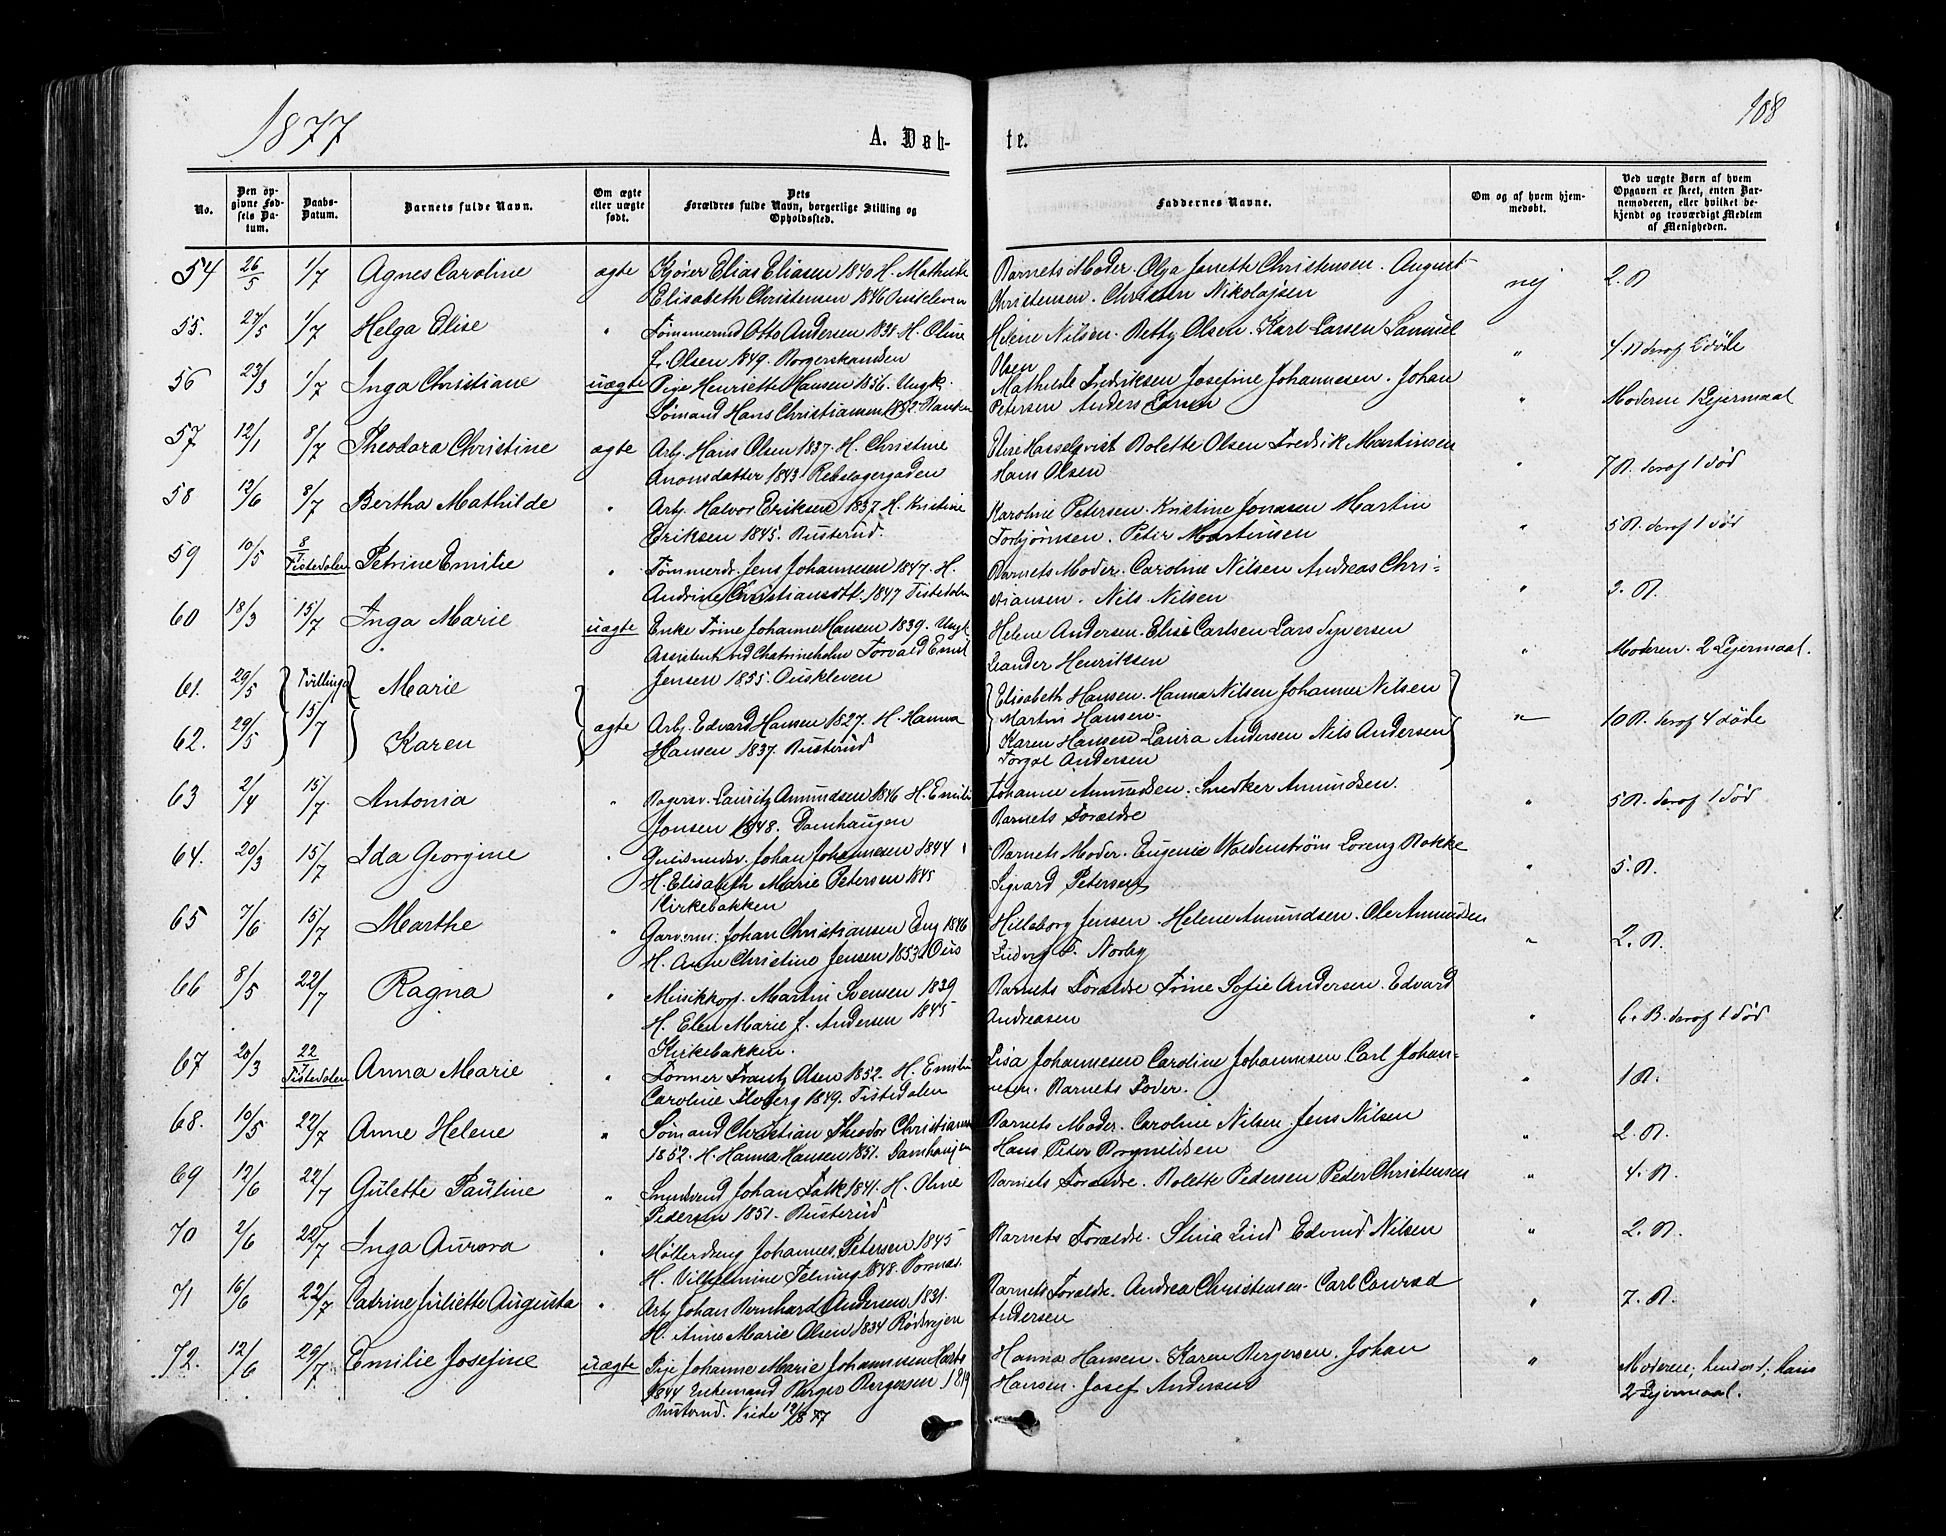 1877
108
A. Døb-
te.
No.
Den op-
givne Fød-
sels Da-
tum.
Daabs-
Datum.
Barnets fulde Navn.
Om ægte
eller uægte
født.
Dets
Forældres fulde Navn, borgerlige Stilling og
Opholdssted.
Faddernes Navne.
Om og af hvem hjem-
medøbt.
Ved uægte Børn af hvem
Opgaven er skeet, enten Bar-
nemoderen, eller hvilket be-
kjendt og troværdigt Medlem
af Menigheden.
54 26/5 1/7 Agnes Caroline ægte Kjører Elias Eliasen 1840 H. Mathilde
Elisabeth Christensen 1846
Barnets Moder. Olga Janette Christensen. August
Christensen. Christen Nikolajsen
nej 2. B.
55. 27/5 1/7 Helga Elise " Tømmermd Otto Andersen H. Oline
L. Olsen 1849. Borgerskansen
Helene Nilsen. Betty Olsen. Karl Larsen Samuel
Olsen
" 4 B deraf 2 døde
56 23/3 1/7 Inga Christiane uægte Pige Henriette Hansen 1856. Ungk.
Sømand Hans Christiansen 1852
Mathilde Fredriksen Josefine Johannesen. Johan
Petersen Anders Larsen
" Moderen 1 Lejermaal
57 12/1 8/7 Theodora Christine ægte Arb. Hans Olsen 1837. H. Christine
Aronsdatter 1843 Rebslagergaden
Elise Hasselqvist Bolette Olsen Fredrik Martinsen
Hans Olsen
" 7 B. deraf 1 død
58 12/6 8/7 Bertha Mathilde " Arb. Halvor Eriksen 1837 H. Kristine
Eriksen 1845. Busterud.
Karoline Petersen. Kristine Jonasen Martin
Torbjørnsen. Peter Martinsen
" 5 B. deraf 1 død
59 10/5 8/7 Tistedalen Petrine Emilie " Tømmerdr. Jens Johannesen 1847. H.
Andrine Christiansdtt. 1847 Tistedalen
Barnets Moder. Caroline Nilsen Andreas Chri-
stiansen. Nils Nilsen
" 2. B.
60 18/3 15/7 Inga Marie uægte Enke Trine Johanne Hansen 1839. Ungk.
Assistent ved Chatrineholm Torvald Emil
Jensen 1855.
Helene Andersen. Elise Carlsen Lars Syversen
Leander Henriksen
" Moderen. 2 Lejermaal.
61. 29/5 Tvillinger Marie
Elisabeth Hansen. Hanna Nilsen Johannes Nilsen
Martin Hansen.
62. 29/5 15/7 Karen ægte Arb. Edvard Hansen 1827. H. Hanna
Hansen 1837. Busterud
Karen Hansen Laura Andersen Nils Andersen
Torgal Andersen
" 10 B. deraf 4 døde
63 2/4 15/7 Antonia " Bagersv. Lauritz Amundsen 1846 H. Emilie
Jonsen 1848. Damhaugen
Johanne Amundsen. Snedker Amundsen.
Barnets Forældre
" 5 B. deraf 1 død
64. 20/3 15/7 Ida Georgine " Johan Johannesen 1844
H. Elisabeth Marie Petersen 1845
Kirkebakken
Barnets Moder. Eugenie Waldenstrøm Lorenz Bakke
Sigvard Petersen
" 5. B.
65 7/6 15/7 Marthe " Garverm. Johan Christiansen Eng 1846
H. Anne Christine Jensen 1853
Hilleborg Jensen. Helene Amundsen. Ole Amundsen
Ludvig F. Norby
" 2. B.
66 8/5 22/7 Ragna " Musikkorp. Martin Svensen 1839
H. Elen Marie J. Andersen 1845
Kirkebakken.
Barnets Forældre Trine Sofie Andersen. Edvard
Andreasen
" 6. B. deraf 1 død
67 20/3 22/7 Tistedalen Anna Marie " Former Frantz Olsen 1852. H. Emilie
Caroline 1849. Tistedalen
Lisa Johannesen Caroline Johannesen Carl Johan-
nesen. Barnets Fader.
" 1 B.
68. 10/5 22/7 Anne Helene " Sømand Christian Theodor Christiansen
1852. H. Hanna Hansen 1851. Damhaugen
Barnets Moder. Caroline Nilsen. Jens Nilsen
Hans Peter
" 2. B.
69 12/6 22/7 Gulette Pauline " Smedsvend Johan Falk 1841. H. Oline
Pedersen 1851. Busterud
Barnets Forældre. Bolette Pedersen Peder Christensen
" 4. B.
70 2/6 22/7 Inga Aurora " Møllerdreng Johannes Petersen 1845
H. Vilhelmine 1848.
Barnets Forældre. Stina Lind Edvind Nilsen
" 2. B.
71 16/6 22/7 Catrine Juliette Augusta " Arb Johan Bernhard Andersen 1831.
H. Anne Marie Olsen 1834 Rødsvejen
Barnets Forældre. Andrea Christensen. Carl Conrad
Andersen
" 7. B.
72. 12/6 29/7 Emilie Josefine uægte Pige Johanne Marie Johannesen
1844 Enkemand Børger Børgersen 1819
Busterud. Viede 12/8 77
Hanna Hansen. Karen Børgersen. Johan
Hansen. Josef Andersen
" Moderen; hendes 1; hans
2 Lejermaal.